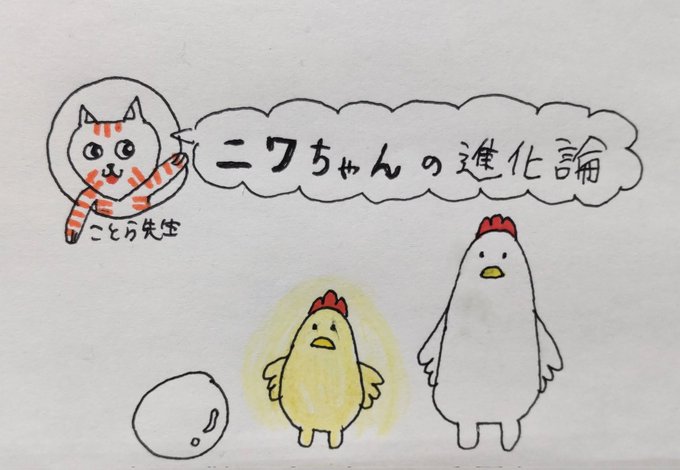 ニワちゃんの進化論
ことら先生